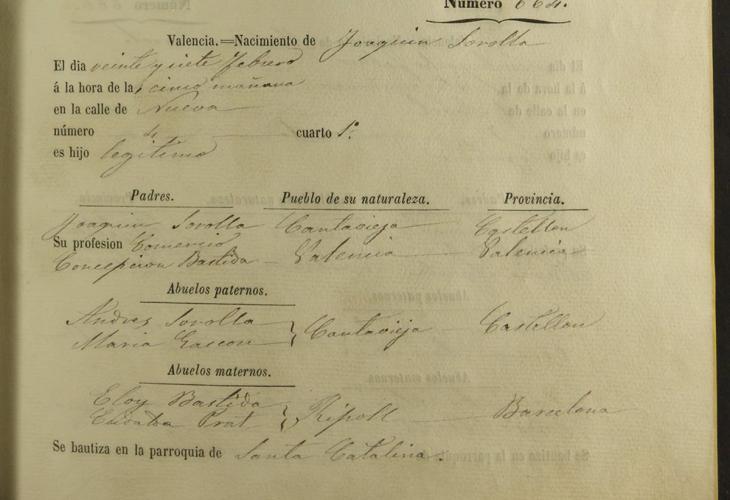 Número 664.
Valencia.=Nacimiento de Joaquin Sorolla
El dia veinte y siete Febrero
á la hora de la cinco mañana
en la calle de Nueva
número 4 cuarto 1º
es hijo legitimo
Padres. Pueblo de su naturaleza. Provincia.
Joaquin Sorolla Cantavieja Castellon
Su profesion Comercio
Concepcion Bastida Valencia Valencia
Abuelos paternos.
Andres Sorolla
Maria Gascon } Cantavieja Castellon
Abuelos maternos.
Eloy Bastida
Prat } Ripoll Barcelona
Se bautiza en la parroquia de Santa Catalina.